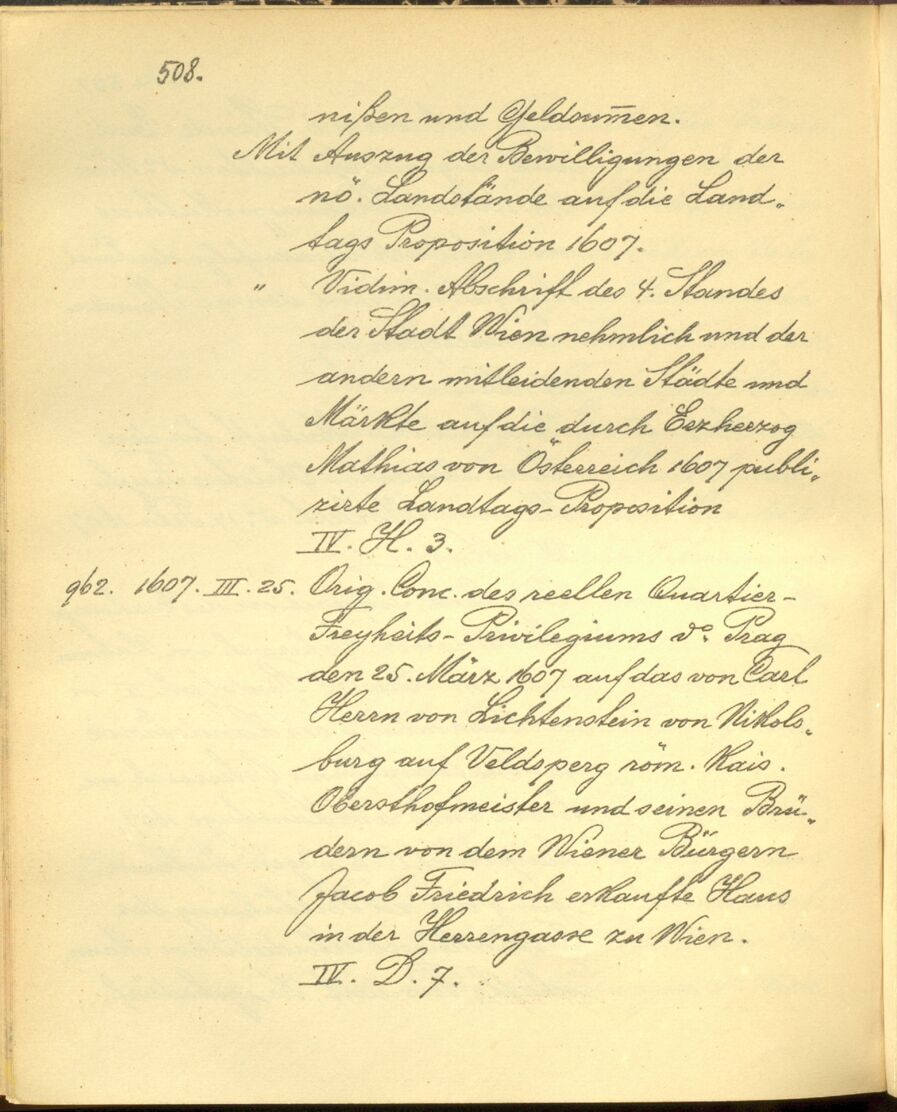 508.
nißen und Geldsum̅en.
Mit Auszug der Bewilligungen der
nö. Landstände auf die Land„
tags Proposition 1607.
" Vidim. Abschrift des 4. Standes
der Stadt Wien nehmlich und der
andern mitleidenden Städte und
Märkte auf die durch Erzherzog
Mathias von Österreich 1607 publi„
zirte Landtags-Proposition
IV. H. 3.
962. 1607. III. 25. Orig. Conc. des reellen Quartier-
Freyheits-Privilegiums do. Prag
den 25. März 1607 auf das von Carl
Herrn von Lichtenstein von Nikols„
burg auf Veldsperg röm. Kais.
Obersthofmeister und seinen Brü„
dern von dem Wiener Bürgern
Jacob Friedrich erkaufte Haus
in der Herrengasse zu Wien.
IV. D. 7.